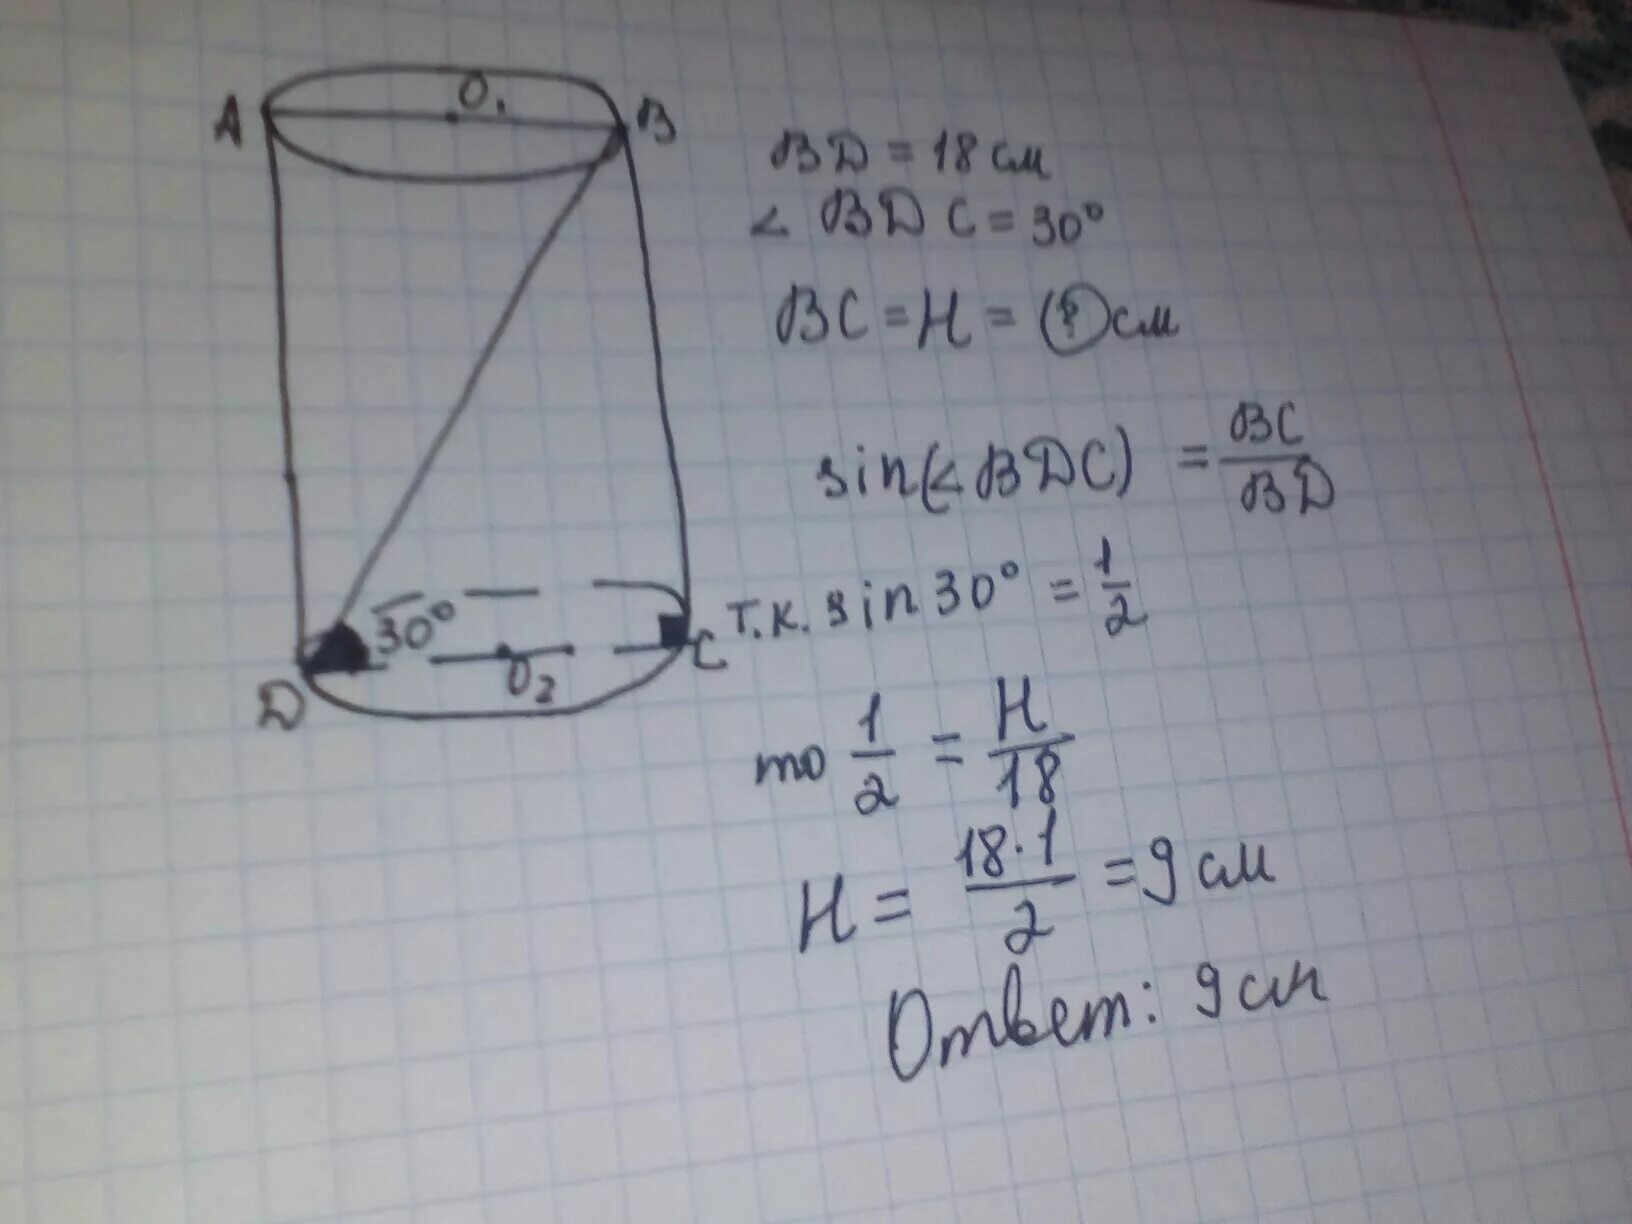 A O₁ B
30°
D O₂ C
BD = 18 см
∠ BDC = 30°
BC = H = (?) см
sin(∠BDC) = BC/BD
т.к. sin 30° = 1/2
то 1/2 = H/18
H = 18·1/2 = 9 см
Ответ: 9 см